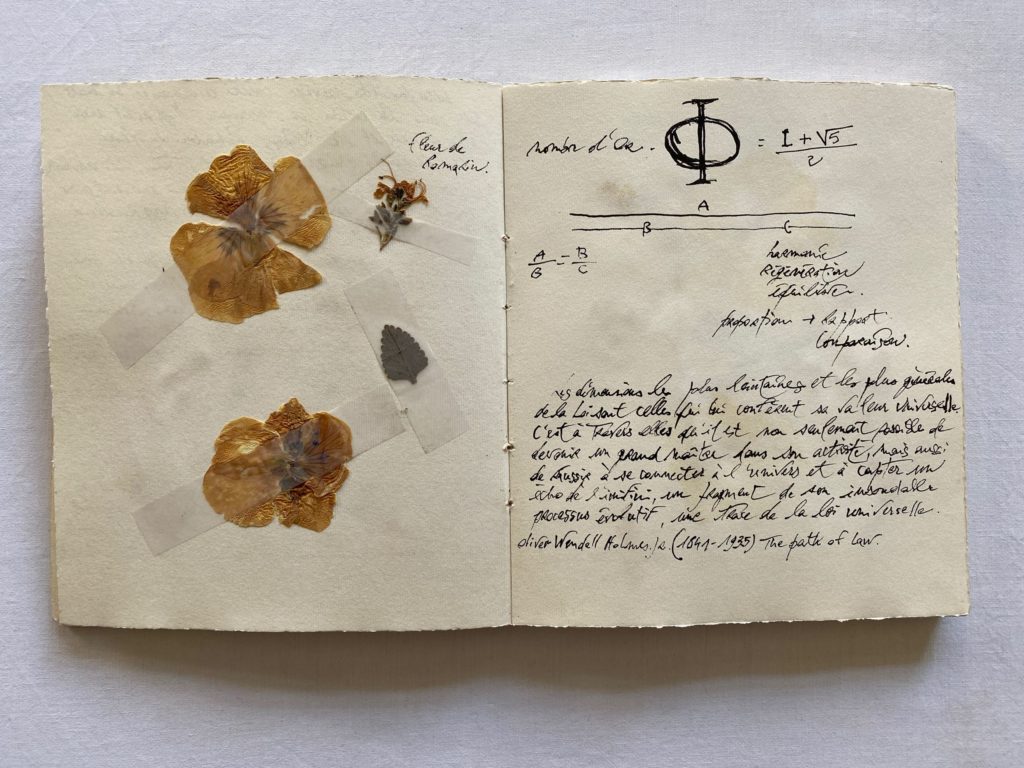 Fleur de
Romarin.
nombre d'Or. Φ = 1 + √5
2
A
B C
A = B
B C
harmonie
Régénération
équilibre.
proportion → Rapport
Comparaison.
dimensions les plus lointaines et les plus générales
de la Loi sont celles qui lui confèrent sa valeur universelle.
C'est à travers elles qu'il est non seulement possible de
devenir un grand maître dans son activité, mais aussi
de réussir à se connecter à l'univers et à capter un
écho de l'infini, un fragment de son insondable
processus évolutif, une trace de la loi universelle.
Oliver Wendell Holmes. Jr. (1841-1935) The path of Law.